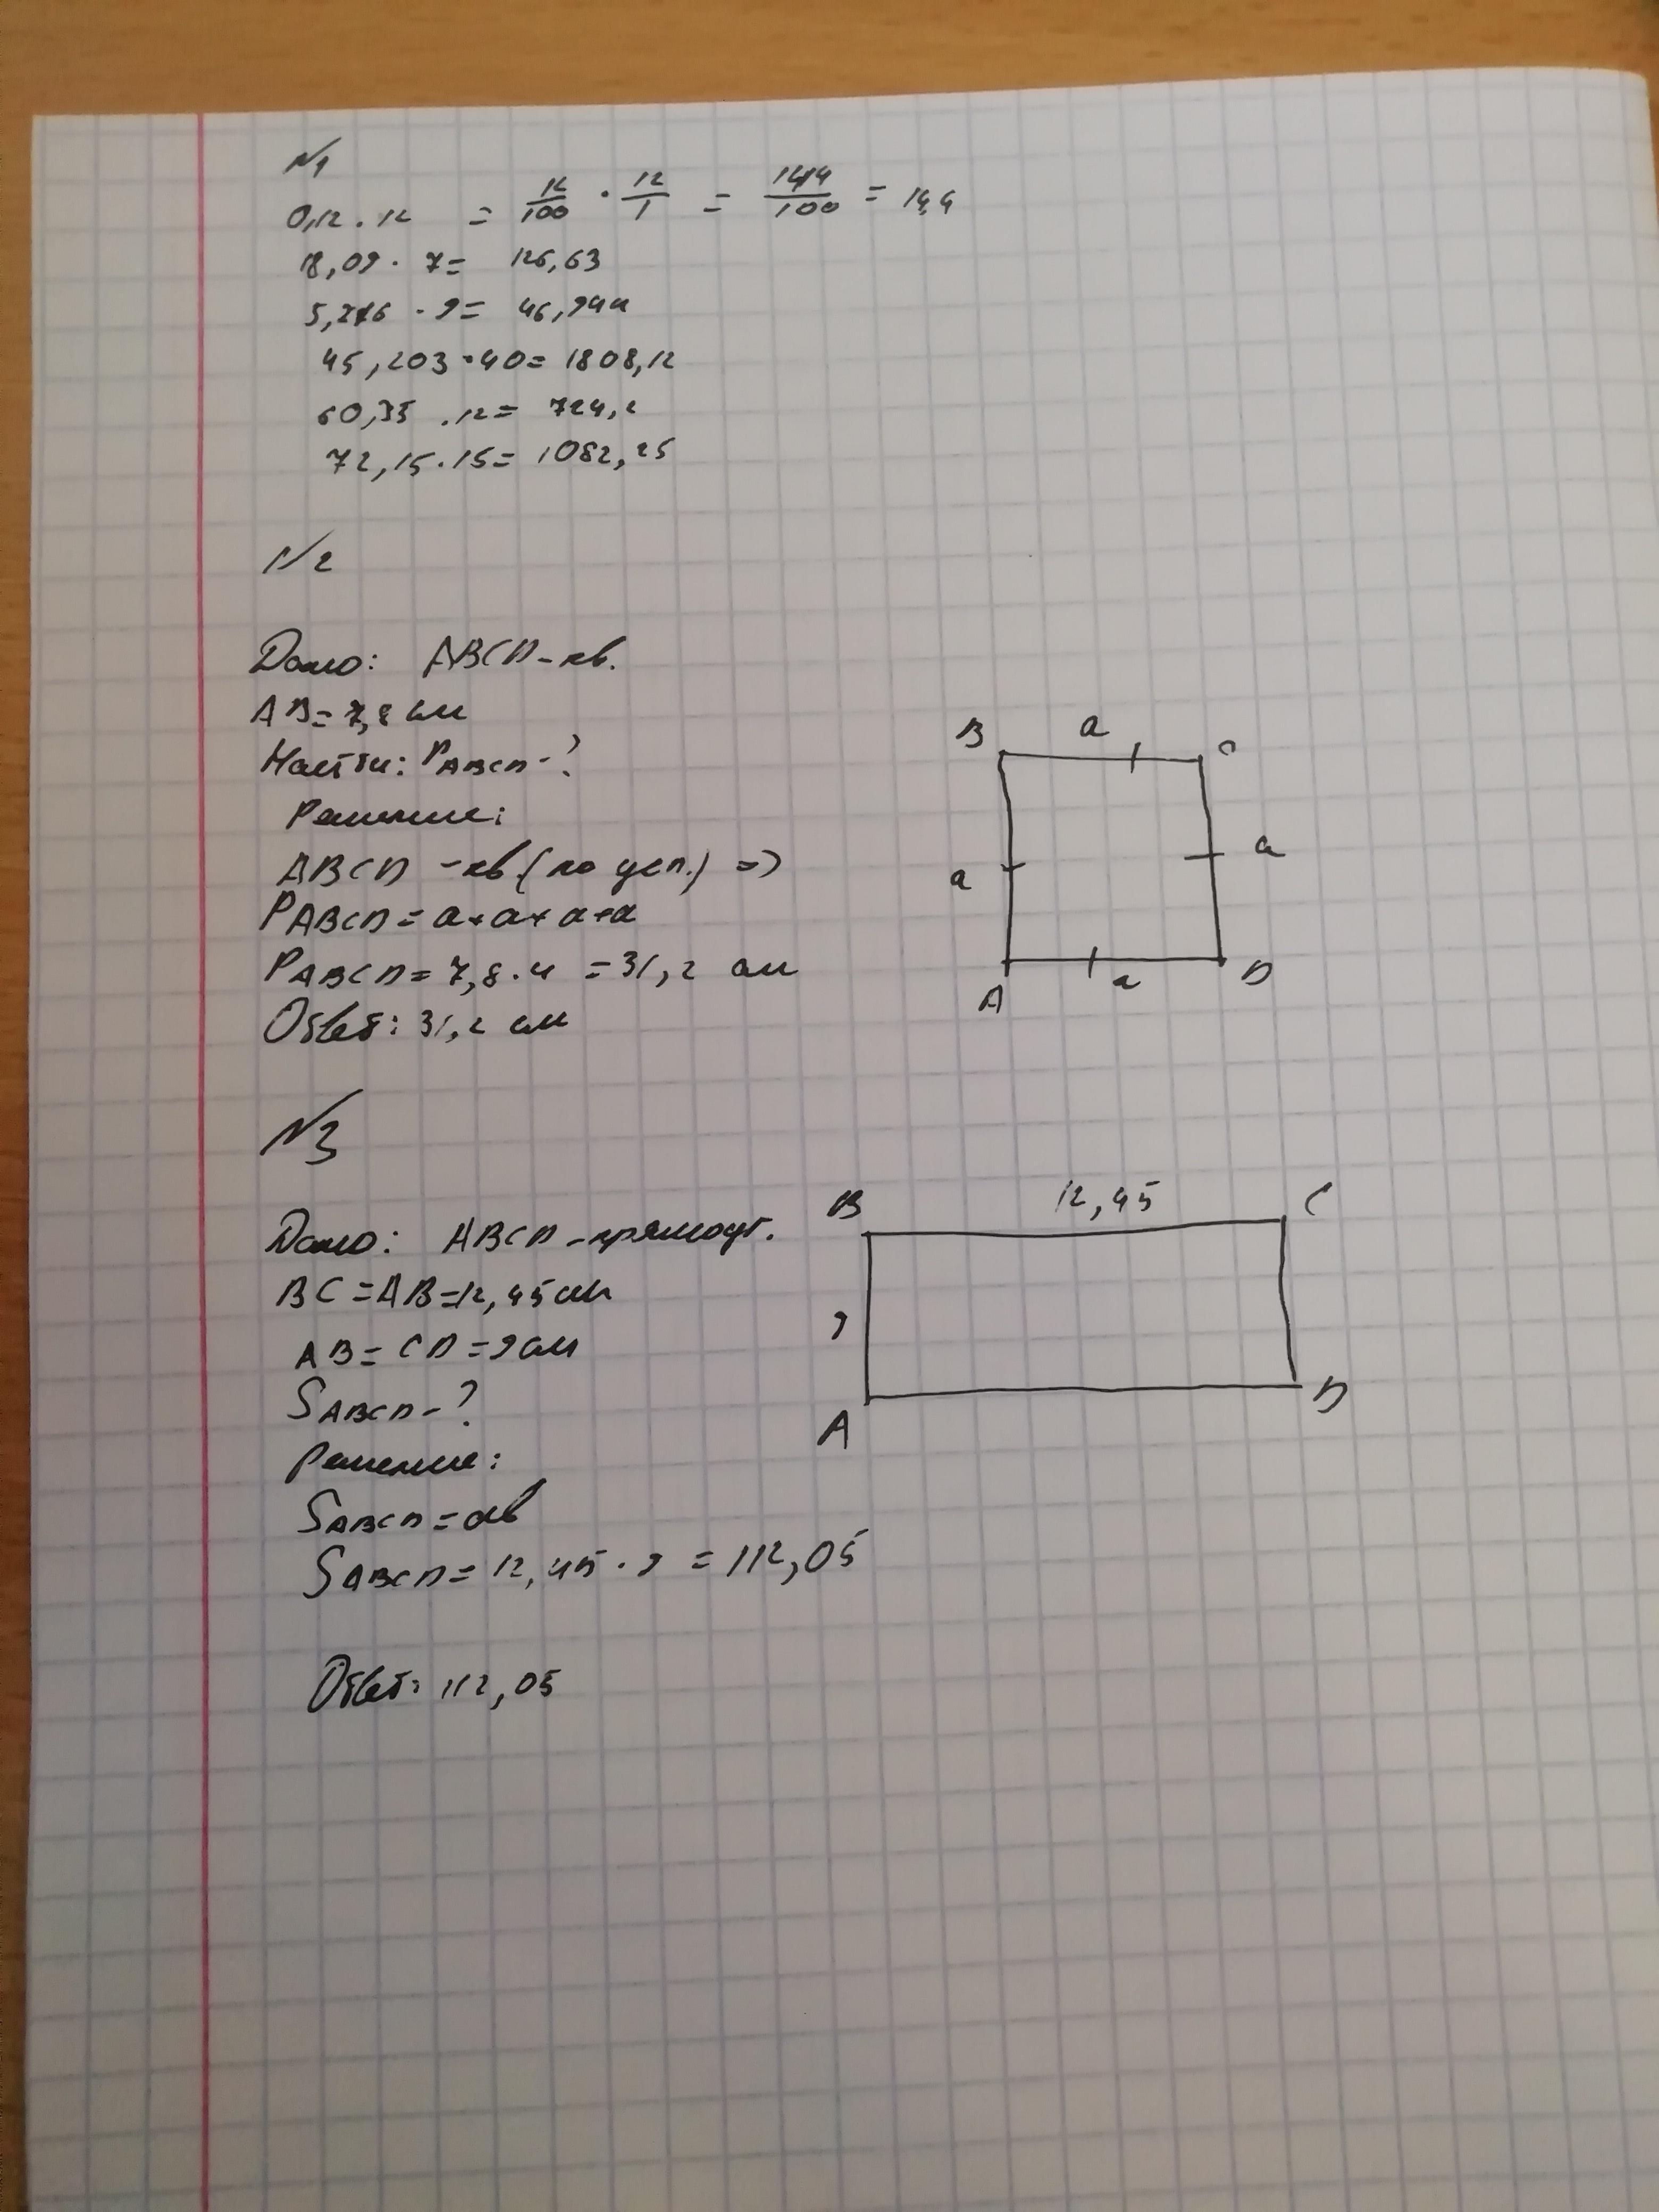 №1
0,12 · 12 = 12/100 · 12/1 = 144/100 = 14,4
18,09 · 7 = 126,63
5,216 · 9 = 46,944
45,203 · 40 = 1808,12
60,35 · 12 = 724,2
72,15 · 15 = 1082,25
№2
Дано: ABCD - кв.
AB = 7,8 см
Найти: PABCD - ?
Решение:
ABCD - кв. (по усл.) =>
PABCD = a + a + a + a
PABCD = 7,8 · 4 = 31,2 см
Ответ: 31,2 см
B a C
a a
A a D
№3
Дано: ABCD - прямоуг.
BC = AB = 12,45 см
AB = CD = 9 см
SABCD - ?
Решение:
SABCD = ab
SABCD = 12,45 · 9 = 112,05
Ответ: 112,05
B 12,45 C
9
A D